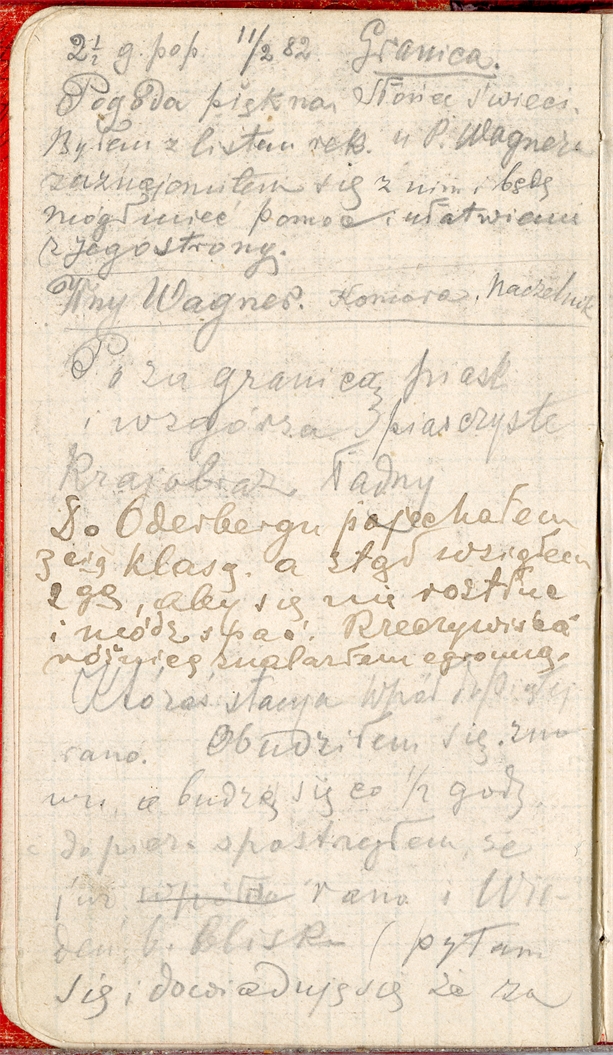 2½ g. pop. 11/2 82. Granica.
Pogoda piękna. Słońce świeci.
Byłem z listem rek. u P. Wagnera
zaznajomiłem się z nim i będę
mógł mieć pomoc i ułatwieni
z jego strony.
Wny Wagner. Komora. Naczelnik
Po za granicą piask
i wzgórza piasczyste
Krajobraz ładny
Do Oderbergu pojechałem
3cią klasą. a ztąd wziąłem
2gą, aby się nie roztłuc
i módz spać. Rzeczywiście
różnicę znalazłem ogromną.
Któraś stacya wpół do piątej
rano. Obudziłem się. znu
wu, a budzę się co 1/2 godz.
dopiero spostrzegłem, że
już wpółdo rano i Wie-
deń, b. blisko (pytam
się i dowiaduję się że za